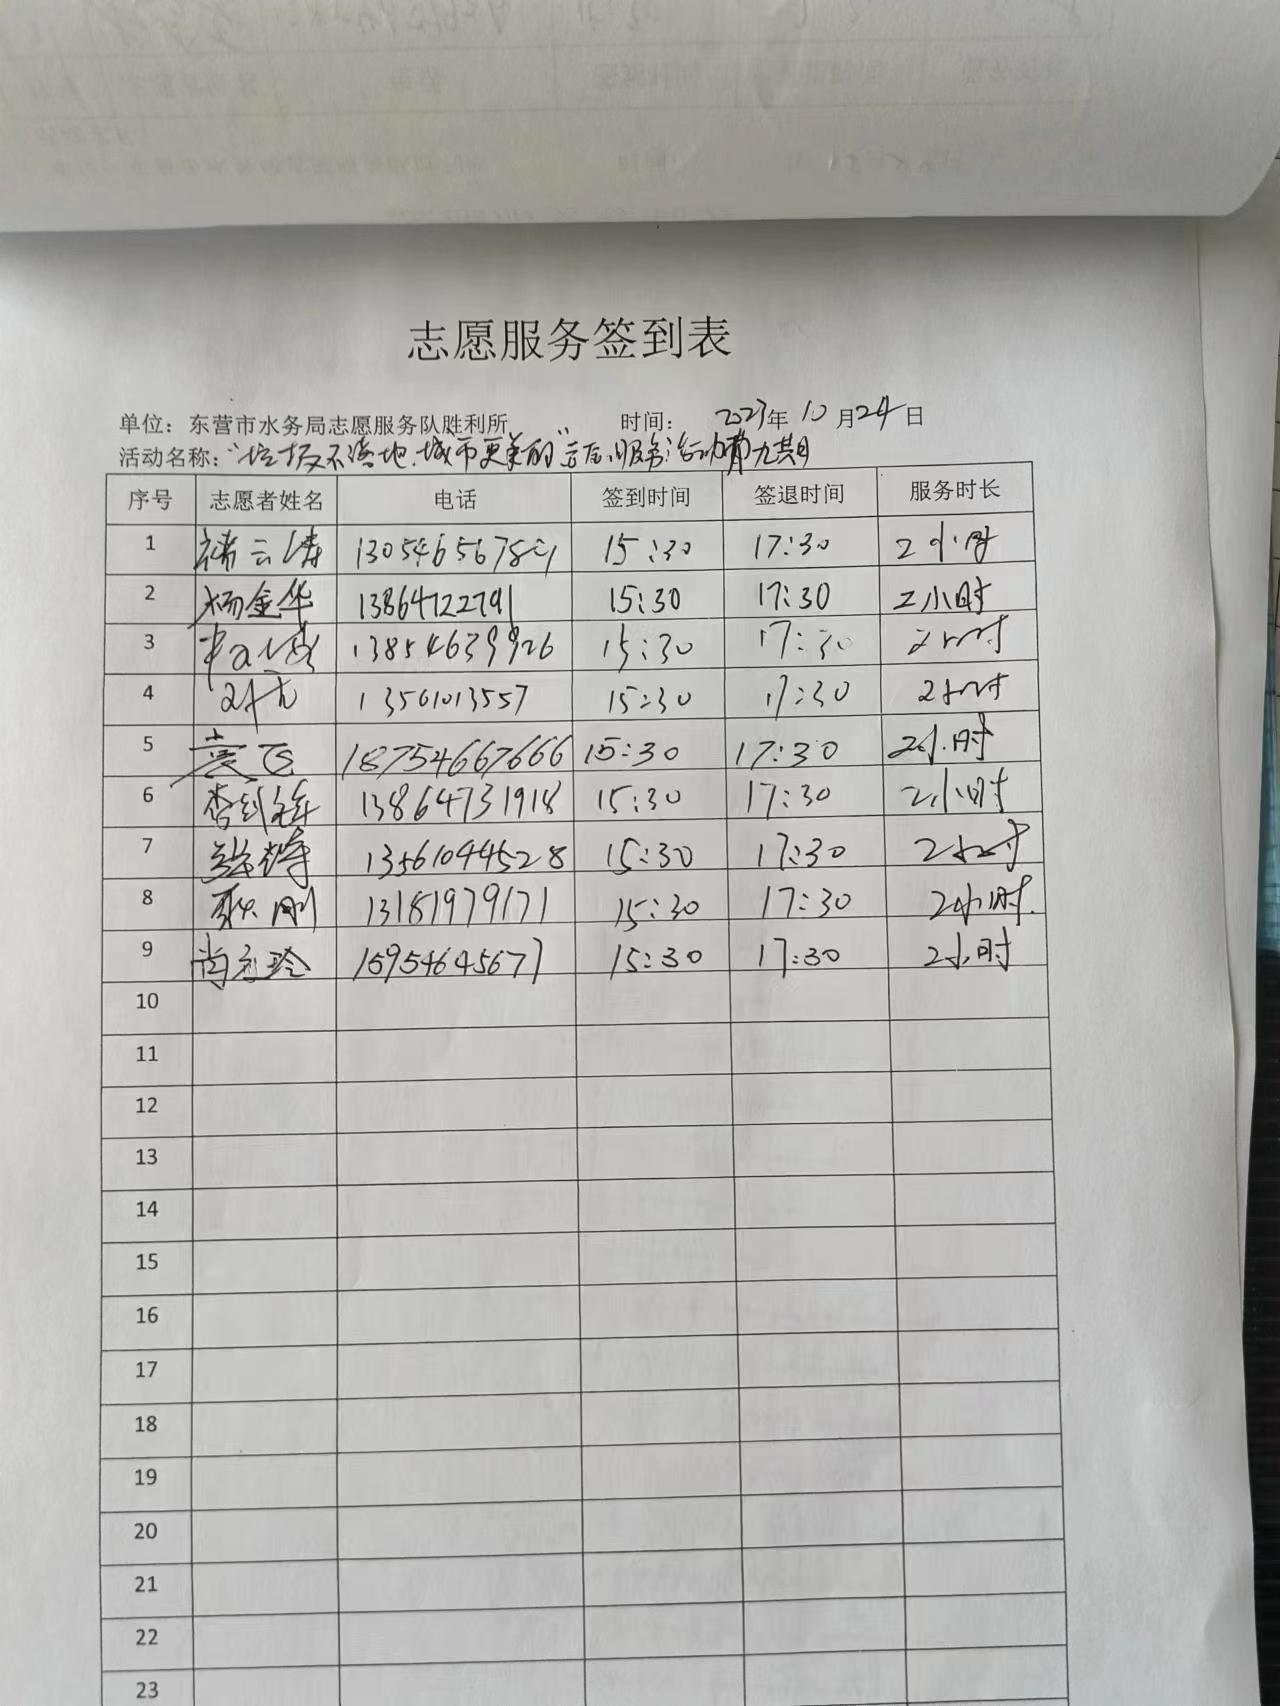 志愿服务签到表
单位：东营市水务局志愿服务队胜利所 时间： 2023年 10 月 24 日
活动名称：“垃圾不落地，城市更美的”志愿服务活动第九期
序号 志愿者姓名 电话 签到时间 签退时间 服务时长
1 褚云涛 15:30 17:30 2小时
2 杨金华 13864722791 15:30 17:30 2小时
3 13854639926 15:30 17:30 2小时
4 13561013557 15:30 17:30 2小时
5 袁飞 18754667666 15:30 17:30 2小时
6 13864731918 15:30 17:30 2小时
7 13561044528 15:30 17:30 2小时
8 耿刚 13181979171 15:30 17:30 2小时.
9 15954645677 15:30 17:30 2小时
10
11
12
13
14
15
16
17
18
19
20
21
22
23